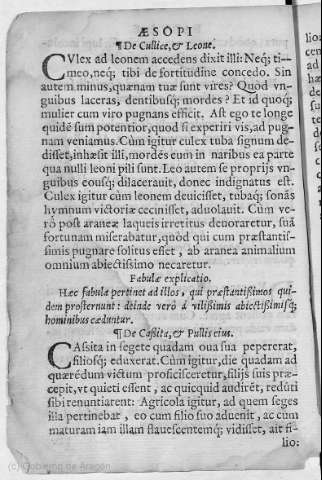 ÆSOPI
¶De Culice, & Leone.
CVlex ad leonem accedens dixit illi: Neq; ti-
meo, neq; tibi de fortitudine concedo. Sin
autem minus, quænam tuæ sunt vires? Quòd vn-
guibus laceras, dentibusq; mordes? Et id quoq;
mulier cum viro pugnans efficit. Ast ego te longe
quidẽ sum potentior, quòd si experiri vis, ad pug-
nam veniamus. Cùm igitur culex tuba signum de-
disset, inhæsit illi, mordẽs eum in naribus ea parte
qua nulli leoni pili sunt. Leo autem se proprijs vn-
guibus eousq; dilacerauit, donec indignatus est.
Culex igitur cùm leonem deuicisset, tubaq; sonãs
hymnum victoriæ cecinisset, aduolauit. Cùm ve-
rò post araneæ laqueis irretitus deuoraretur, suã
fortunam miserabatur, quòd qui cum præstantis-
simis pugnare solitus esset, ab aranea animalium
omnium abiectissimo necaretur.
Fabulæ explicatio.
Hæc fabula pertinet ad illos, qui præstantißimos qui-
dem prosternunt: deinde verò à vilißimis abiectißimisq;
hominibus cæduntur.
¶De Caßita, & Pullis eius.
CAssita in segete quadam oua sua pepererat,
filiosq; eduxerat. Cùm igitur, die quadam ad
quærẽdum victum proficisceretur, filijs suis præ-
cepit, vt quieti essent, ac quicquid audirẽt, redũti
sibi renuntiarent: Agricola igitur, ad quem seges
illa pertinebat, eo cum filio suo aduenit, ac cum
maturam iam illam flauescentemq; vidisset, ait fi-
lio:
(c) Gobierno de Aragón